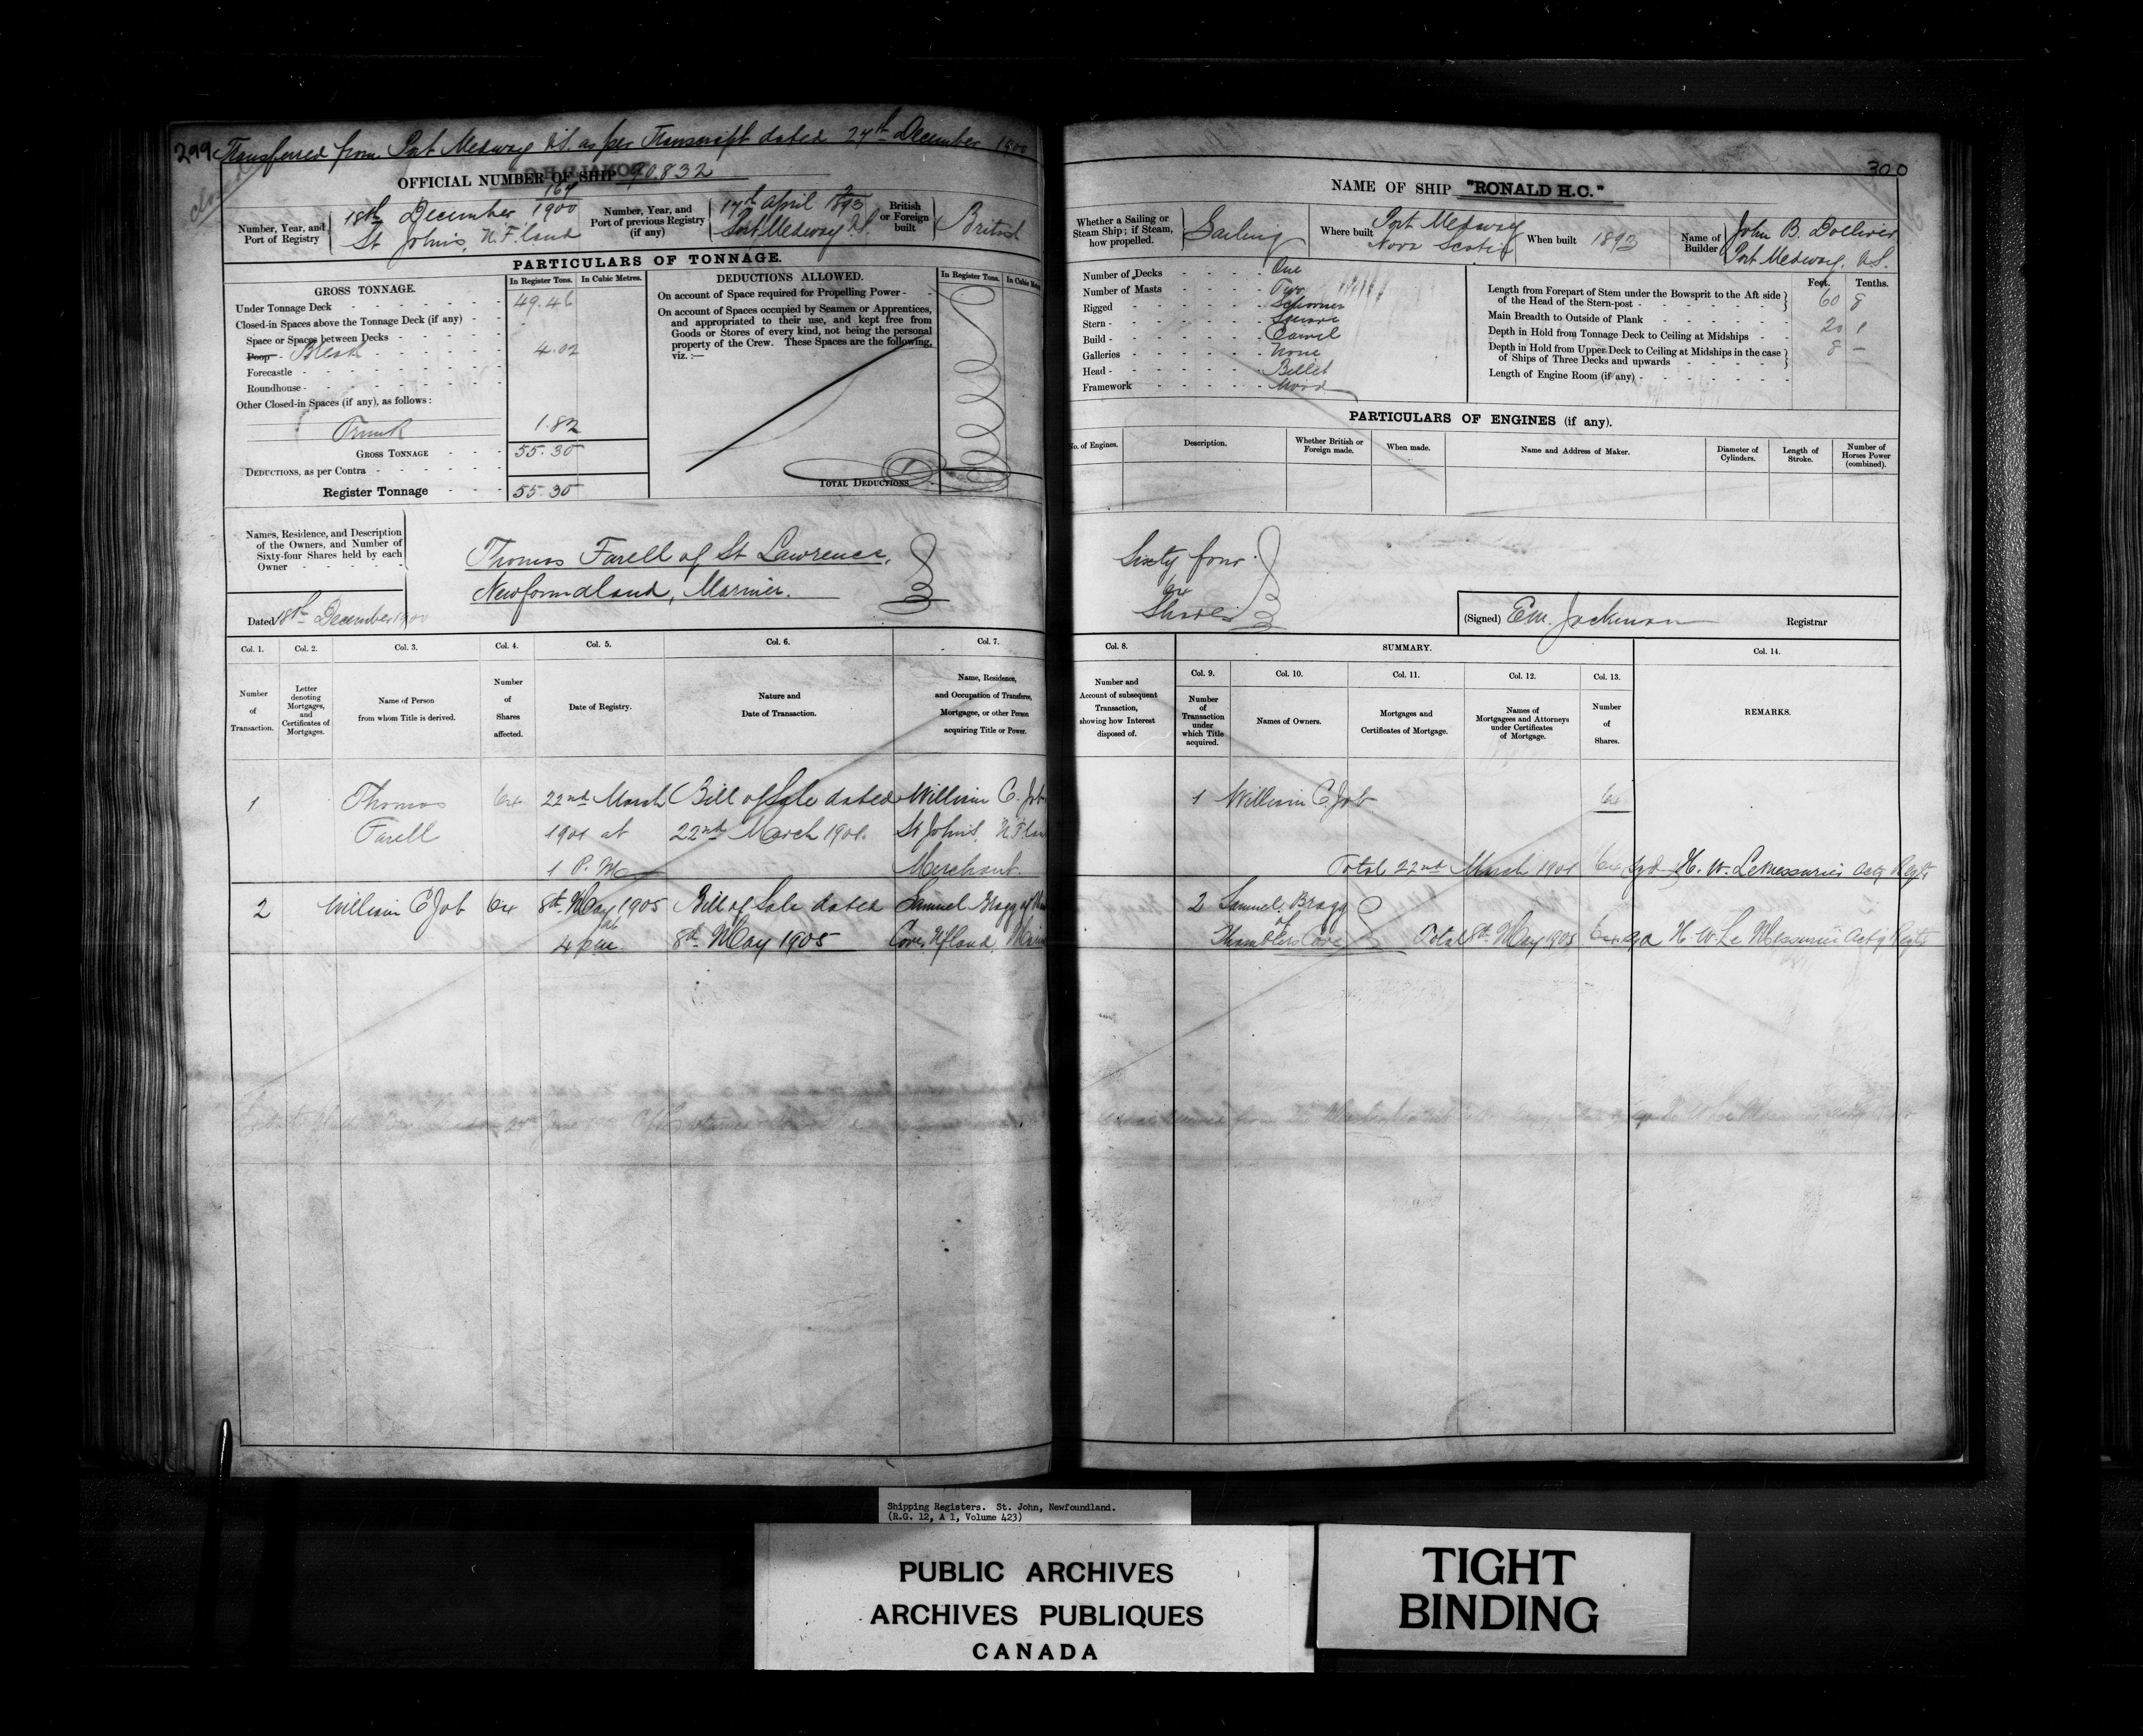 299 Transferred from Port Medway N.S. as per Transcript dated 27th December 1900
OFFICIAL NUMBER OF SHIP 90.832
Number, Year, and Port of Registry
164
18th December 1900
St John's, N.F.land
Number, Year, and Port of previous Registry (if any)
17th April 2/1893
Port Medway N.S.
British or Foreign built
British
PARTICULARS OF TONNAGE.
GROSS TONNAGE.
In Register Tons.
In Cubic Metres.
Under Tonnage Deck 49.46
Closed-in Spaces above the Tonnage Deck (if any)
Space or Spaces between Decks
Poop Break 4.02
Forecastle
Roundhouse
Other Closed-in Spaces (if any), as follows:
Trunk 1.82
GROSS TONNAGE 55.30
DEDUCTIONS, as per Contra
Register Tonnage 55.30
DEDUCTIONS ALLOWED.
In Register Tons.
On account of Space required for Propelling Power
On account of Spaces occupied by Seamen or Apprentices,
and appropriated to their use, and kept free from
Goods or Stores of every kind, not being the personal
property of the Crew. These Spaces are the following,
viz.:—
TOTAL DEDUCTIONS
Names, Residence, and Description
of the Owners, and Number of
Sixty-four Shares held by each
Owner
Thomas Farell of St Lawrence,
Newfoundland, Mariner.
Dated 18th December 1900
Col. 1.
Number
of
Transaction.
Col. 2.
Letter
denoting
Mortgages,
and
Certificates of
Mortgages.
Col. 3.
Name of Person
from whom Title is derived.
Col. 4.
Number
of
Shares
affected.
Col. 5.
Date of Registry.
Col. 6.
Nature and
Date of Transaction.
Col. 7.
Name, Residence,
and Occupation of Transferee,
Mortgagee, or other Person
acquiring Title or Power.
1 Thomas 64 22nd March Bill of Sale dated William C. Job
Farell 1901 at 22nd March 1901. St John's,
1 P.M. Merchant.
2 William C Job 64 8th May 1905 Bill of Sale dated Samuel Bragg of
4 pm 8th May 1905 Cove, Nfland,
300
NAME OF SHIP "RONALD H.C."
Whether a Sailing or
Steam Ship; if Steam,
how propelled.
Sailing
Where built
Port Medway
Nova Scotia
When built 1893
Name of Builder
John B. Dolliver
Port Medway, N.S.
Number of Decks One
Number of Masts Two
Rigged Schooner
Stern Square
Build Carvel
Galleries None
Head Billet
Framework Wood
Feet. Tenths.
Length from Forepart of Stem under the Bowsprit to the Aft side
of the Head of the Stern-post 60 8
Main Breadth to Outside of Plank 20 1
Depth in Hold from Tonnage Deck to Ceiling at Midships 8 –
Depth in Hold from Upper Deck to Ceiling at Midships in the case
of Ships of Three Decks and upwards
Length of Engine Room (if any)
PARTICULARS OF ENGINES (if any).
No. of Engines.
Description.
Whether British or
Foreign made.
When made.
Name and Address of Maker.
Diameter of
Cylinders.
Length of
Stroke.
Number of
Horses Power
(combined).
Sixty four
64
Shares
(Signed) Em. Jackman Registrar
Col. 8.
Number and
Account of subsequent
Transaction,
showing how Interest
disposed of.
SUMMARY.
Col. 9.
Number
of
Transaction
under
which Title
acquired.
Col. 10.
Names of Owners.
Col. 11.
Mortgages and
Certificates of Mortgage.
Col. 12.
Names of
Mortgagees and Attorneys
under Certificates
of Mortgage.
Col. 13.
Number
of
Shares.
Col. 14.
REMARKS.
1 William C. Job 64
Total 22nd March 1901 64 Sgd H. W. LeMessurier Actg Regtr
2 Samuel Bragg
of
Cove Total 8th May 1905 64 Sgd H. W. Le Messurier Actg Regtr
Shipping Registers. St. John, Newfoundland.
(R.G. 12, A 1, Volume 423)
PUBLIC ARCHIVES
ARCHIVES PUBLIQUES
CANADA
TIGHT
BINDING